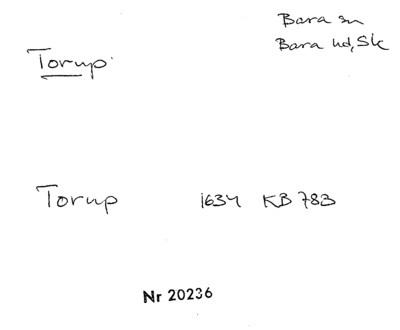 Bara sn
Bara hd, Sk
Torup
Torup 1634 KB 783
Nr 20236